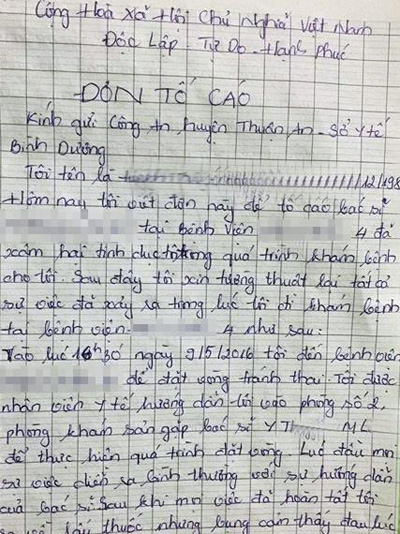 Cộng Hoà Xã Hội Chủ Nghĩa Việt Nam
Độc Lập - Tự Do - Hạnh Phúc
ĐƠN TỐ CÁO
Kính gửi Công An huyện Thuận An - Sở Y tế
Bình Dương
Tôi tên là /12/198
Hôm nay tôi viết đơn này để tố cáo bác sĩ
tại Bệnh Viện 4 đã
xâm hại tình dục tôi trong quá trình khám bệnh
cho tôi. Sau đây tôi xin tường thuật lại tất cả
sự việc đã xảy ra trong lúc tôi đi khám bệnh
tại bệnh viện 4 như sau:
Vào lúc 16h30 ngày 2/5/2016 tôi đến bệnh viện
để đặt vòng tránh thai. Tôi được
nhân viên y tế hướng dẫn tôi vào phòng số 2,
phòng khám sản gặp bác sĩ Y T ML
để thực hiện quá trình đặt vòng. Lúc đầu mọi
sự việc diễn ra bình thường với sự hướng dẫn
của bác sĩ. Sau khi mọi việc đã hoàn tất tôi
lấy thuốc nhưng bụng cảm thấy đau, lúc